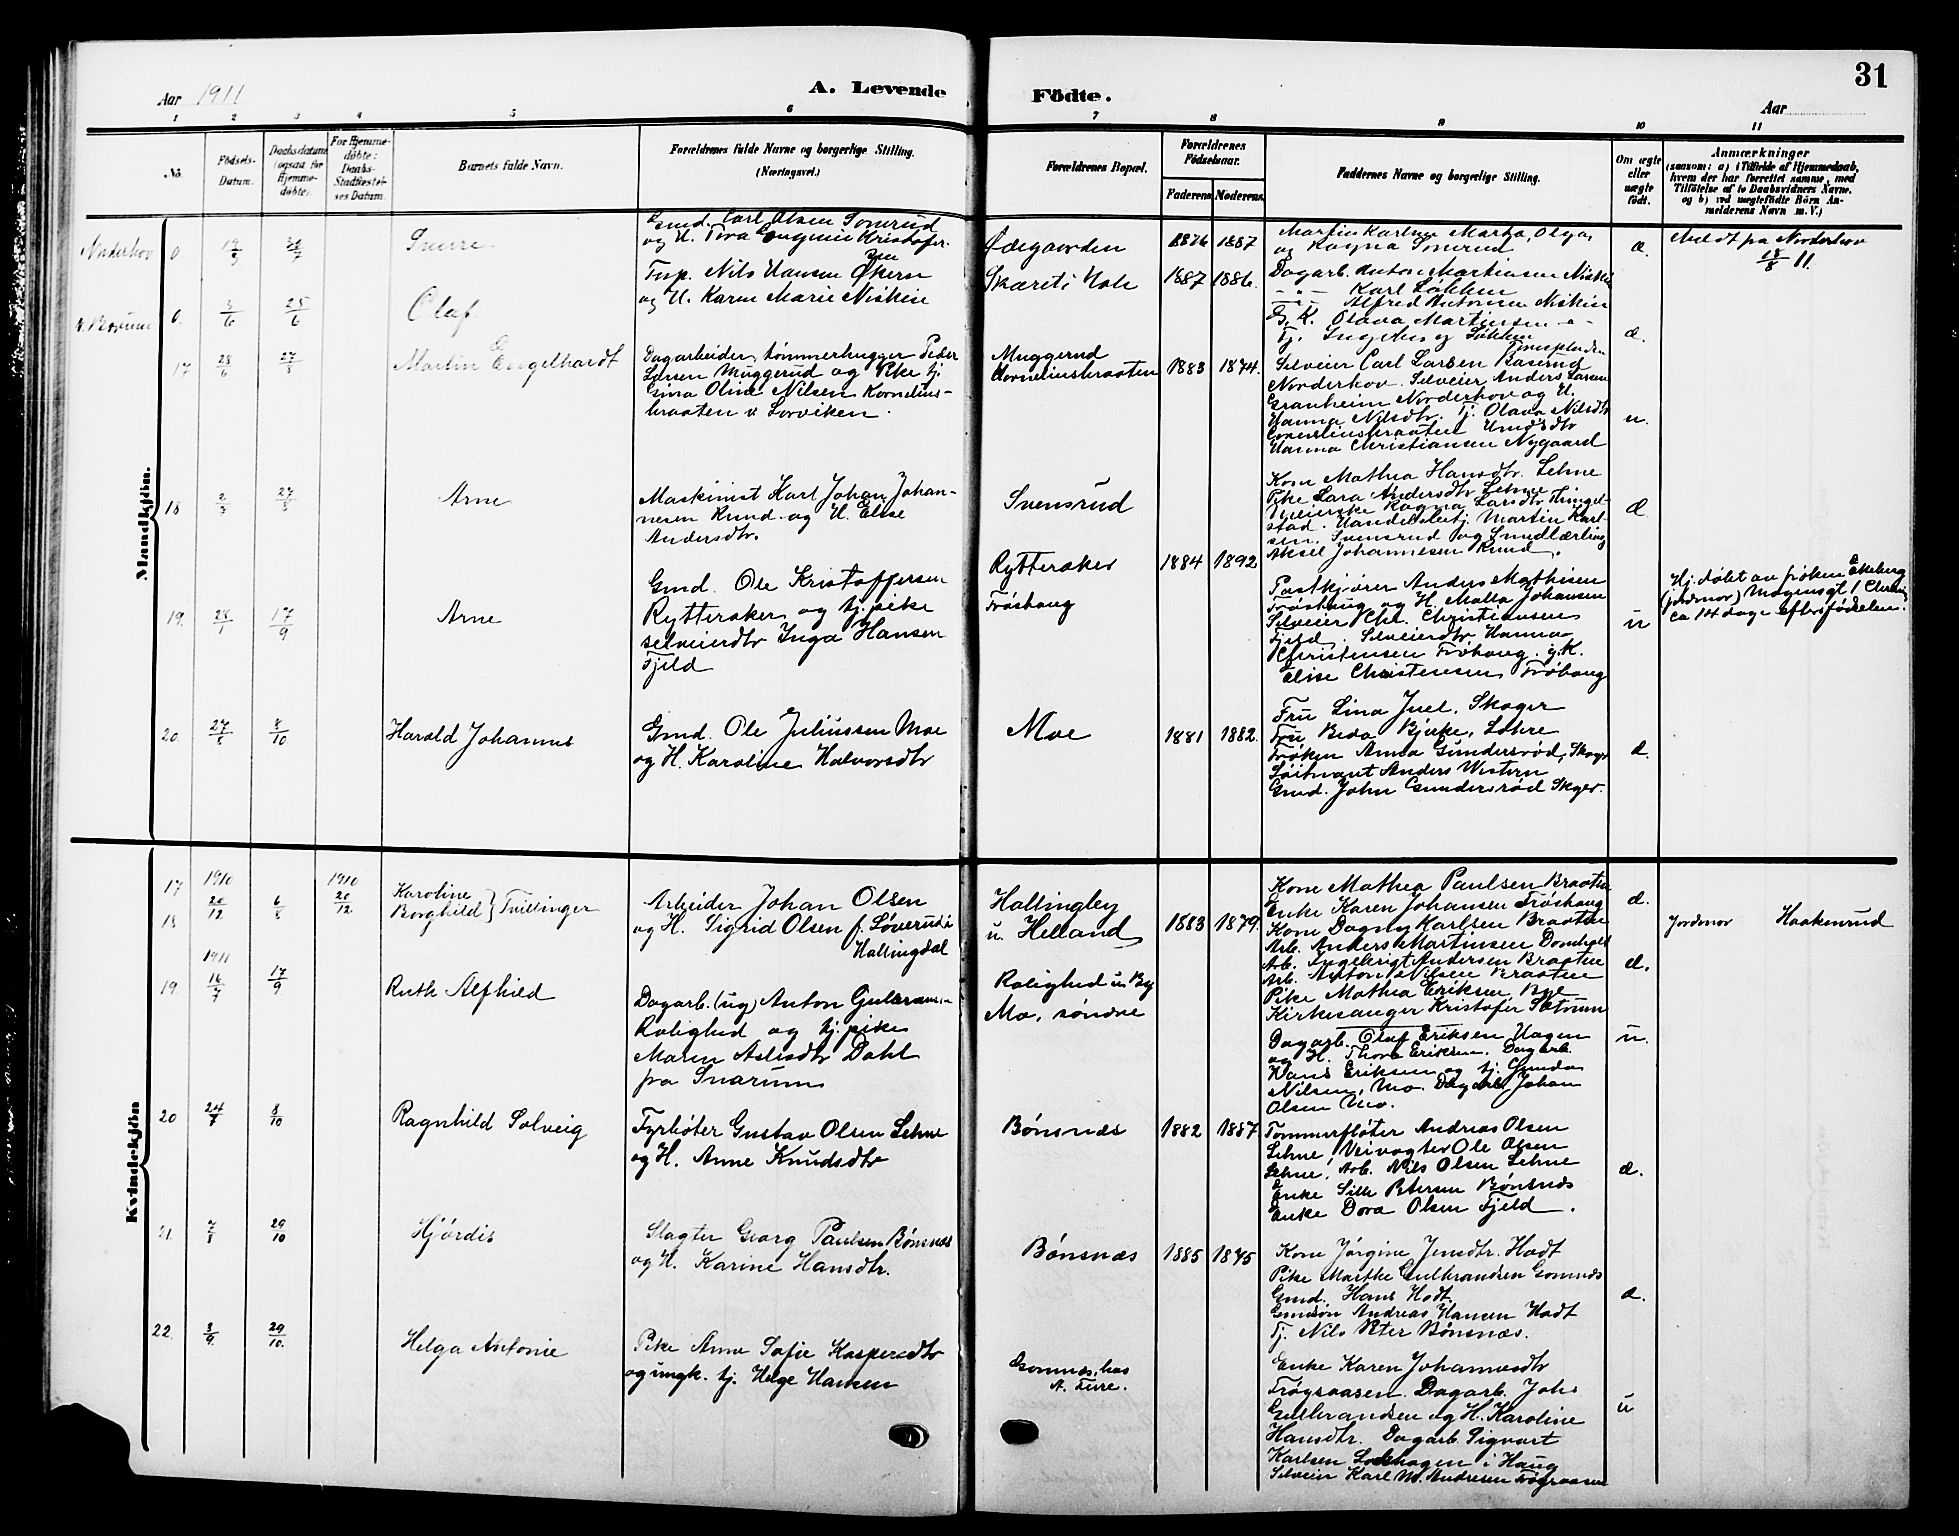 31
Aar 1911
A. Levende
Födte.
Aar
1 2 3 4 5 6 7 8 9 10 11
No.
Födsels-
Datum.
Daabsdatum
(ogsaa for
Hjemme-
døbte).
For Hjemme-
døbte:
Daabs-
Stadfæstel-
ses Datum.
Barnets fulde Navn.
Forældrenes fulde Navne og borgerlige Stilling.
(Næringsvei.)
Forældrenes Bopæl.
Forældrenes
Födselsaar.
Faderens
Moderens
Faddernes Navne og borgerlige Stilling.
Om ægte
eller
uægte
født.
Anmærkninger
(saasom: a) i Tilfælde af Hjemmedaab,
hvem der har forrettet samme, med
Tilføielse af to Daabsvidners Navne,
og b) ved uægtefødte Börn An-
melderens Navn m. V.)
Mandkjön.
Norderhov 0.
Sverre
Gmd. Carl Olsen Somerud
og H. Tora Eugenie Kristofer-
sen
Ødegaarden
1876 1887
Martin Karlsen, Marta, Olga
og Ragna Somerud
æ.
Meldt fra Norderhov
18/8 11.
0. 3/6 25/6
Olaf
Insp. Nils Hansen Økern
og H. Karen Marie Niskin
Skaret i Hole
1887 1886.
Dagarb. Anton Martinsen Niskin
-"- Karl Løkken
-"- Alfred Antonsen Niskin
G. K. Olava Martinsen -"-
Tj. Ingeborg Løkken
æ.
17 28/6 27/8
Martin Engelhardt
Dagarbeider, tømmerhugger Peder
Larsen Muggerud og Pike tj.
Gina Oline Nilsen Kornelius-
braaten v Sorviken.
Muggerud
Korneliusbraaten
1883 1874.
Selveier Carl Larsen Baserud
Norderhov. Selveier Anders Larsen
Granheim Norderhov og H.
Hanna Nilsdtr. Tj. Olava Nilsdtr
Corneliusbraaten Gmdsdtr
Hanna Christiansen Nygaard
u.
18 2/7 27/8
Arne
Maskinist Karl Johan Johan-
nesen Rund og H. Elise
Andersdtr.
Svensrud
Kone Mathea Hansdtr. Lehne
Pike Lara Andersdtr Lehne
Meierske Ragna Larsdtr Hungel-
stad. Handelsbetj. Martin Karl-
sen. Svensrud og Smedlærling
Aksel Johannesen Rund.
æ.
19. 28/1 17/9
Arne
Gmd. Ole Kristoffersen
Rytteraker og tj. pike
selveierdtr Inga Hansen
Fjeld
Rytteraker
Frøshaug
1884 1892
Postkjører Anders Mathisen
Frøshaug og H. Malla Johansen
Selveier Chl. Christiansen
Fjeld. Selveierdtr Hanna
Christensen Frøhaug. g.K.
Elise Christensen Frøhaug
u
Hj. døbt av frøken Ekeberg
(jordmor) Mogensgt 1 Chria
ca 14 dage efter fødselen.
20. 27/5 8/10
Harald Johannes
Gmd. Ole Juliussen Moe
og H. Karoline Halvorsdtr
Moe
1881 1882.
Fru Lina Juel, Skoger
Fru Beda Bjerke, Lohre
Frøken Anna Gundersrød, Skoger
Løitnant Anders Western
Gmd. John Gundersrød Skoger.
æ.
Kvindekjön
17
18
1910
20/12
6/8
1910
20/12
Karoline
Borghild } Tvillinger
Arbeider Johan Olsen
og H. Sigrid Olsen f. Løverud i
Hallingdal
Hallingby
u. Helland
1883 1879.
Kone Mathea Paulsen Braaten
Enke Karen Johansen Frøshaug
Kone Dagny Karlsen Braaten
Arb. Anders Martinsen Domholt
Arb. Ingebrigt Andersen Braaten
Arb. Anton Nilsen Braaten
Pike Mathea Eriksen Bye
Kirkesanger Kristofer Sætrum
æ.
æ.
Jordmor Haakenrud
1911
19. 16/7 17/9
Ruth Alfhild
Dagarb. (ug) Anton Gulbransen
Rolighed og tj. pike
Maren Aslesdtr Dahl
fra Snarum
Rolighed u By
Mo, søndre
Dagarb. Olaf Eriksen Hagen
og H. Thora Eriksen. Dagarb.
Hans Eriksen og tj. Gunda
Nilsen, Mo. Dagarb. Johan
Olsen Mo.
u.
20 24/7 8/10
Ragnhild Solveig
Fyrbøter Gustav Olsen Lehne
og H. Anne Knudsdtr
Bønsnæs
1882 1887
Tømmerfløter Andreas Olsen
Lehne, Veivogter Ole Olsen
Lehne, Arb. Nils Olsen Lehne
Enke Sille Petersen Bønsnæs
Enke Dora Olsen Fjeld.
æ.
21. 7/8 29/10
Hjørdis
Slagter Georg Paulsen Bønsnæs
og H. Karine Hansdtr.
Bønsnæs
1885 1875
Kone Jørgine Jensdtr. Hodt
Pike Marthe Gulbrandsen Gomnæs
Gmd. Hans Hodt.
Gmdsøn Andreas Hansen Hodt
Tj. Nils Peter Bønsnæs.
æ.
22. 3/9 29/10.
Helga Antonie
Pike Anne Sofie Kaspersdtr
og ungk. tj. Helge Hansen
Gomnæs, hos
A. Ture.
Enke Karen Johannesdtr
Frøgsaasen. Dagarb. Johs
Gulbrandsen og H. Karoline
Hansdtr. Dagarb. Sigvart
Karlsen Lodshagen i Haug
Selveier Karl M. Andresen Frøgsaasen
u